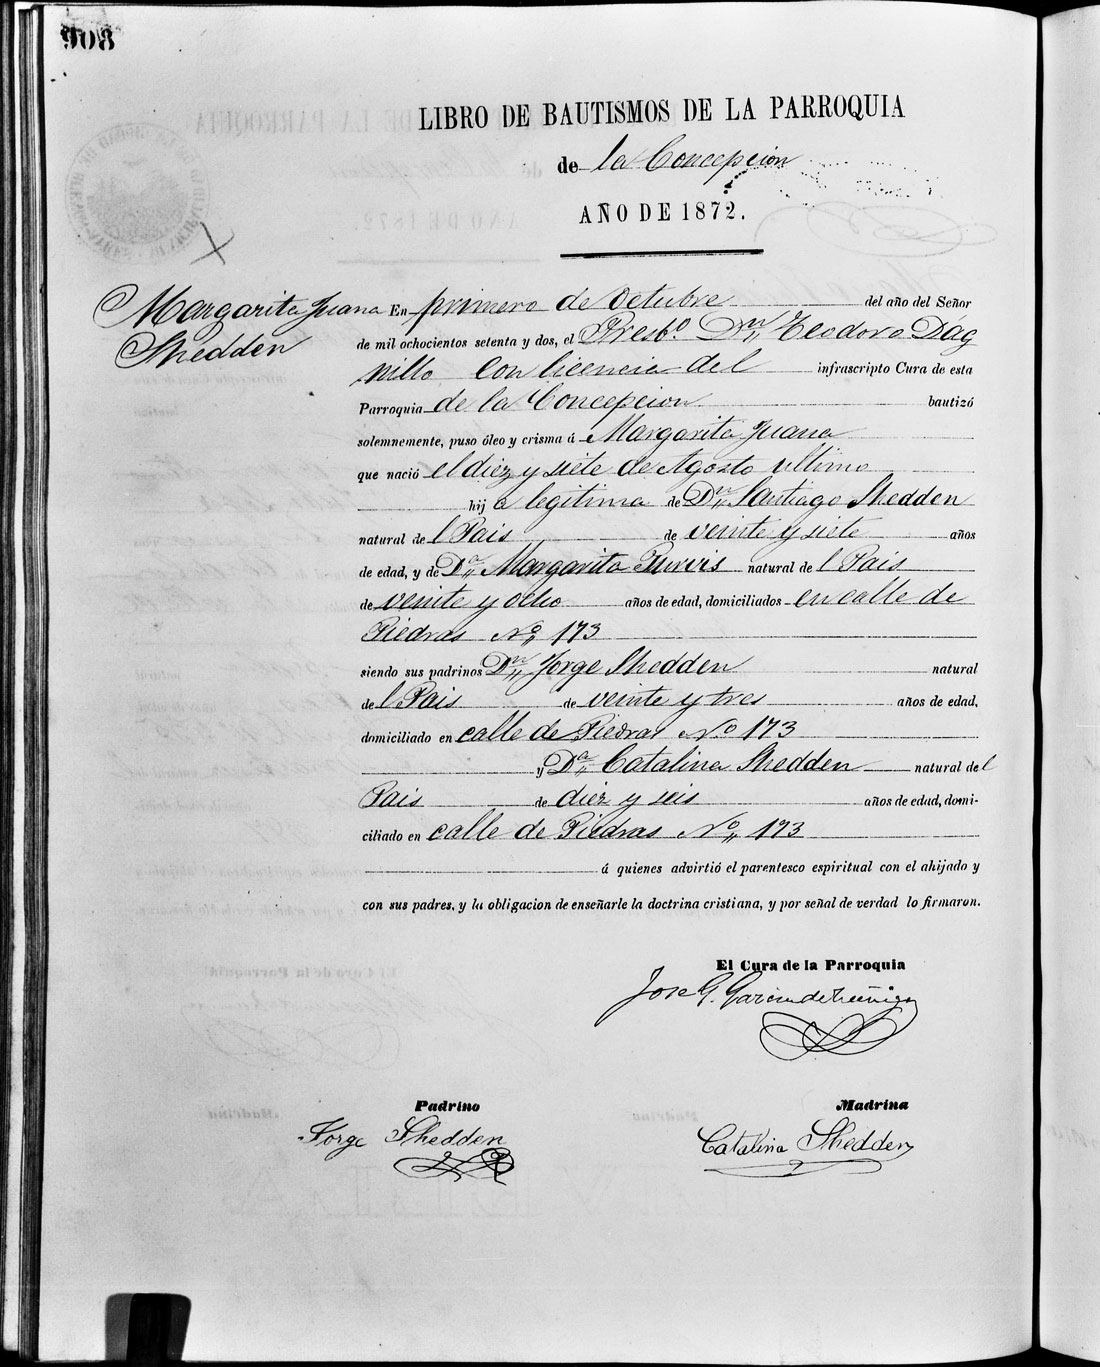 908
LIBRO DE BAUTISMOS DE LA PARROQUIA
de la Concepcion
AÑO DE 1872.
Margarita Juana
Shedden
En primero de Octubre del año del Señor
de mil ochocientos setenta y dos, el Presb.º Dn Teodoro Dág
nillo con licencia del infrascripto Cura de esta
Parroquia de la Concepcion bautizó
solemnemente, puso óleo y crisma á Margarita Juana
que nació el diez y siete de Agosto ultimo
hija legitima de Dn Santiago Shedden
natural del Pais de veinte y siete años
de edad, y de Da Margarita Purvis natural del Pais
de veinte y ocho años de edad, domiciliados en calle de
Piedras No 173
siendo sus padrinos Dn Jorge Shedden natural
del Pais de veinte y tres años de edad,
domiciliado en calle de Piedras No 173
y Da Catalina Shedden natural del
Pais de diez y seis años de edad, domi-
ciliado en calle de Piedras No 173
á quienes advirtió el parentesco espiritual con el ahijado y
con sus padres, y la obligacion de enseñarle la doctrina cristiana, y por señal de verdad lo firmaron.
El Cura de la Parroquia
Jose G. Garcia de Zúñiga
Padrino
Jorge Shedden
Madrina
Catalina Shedden